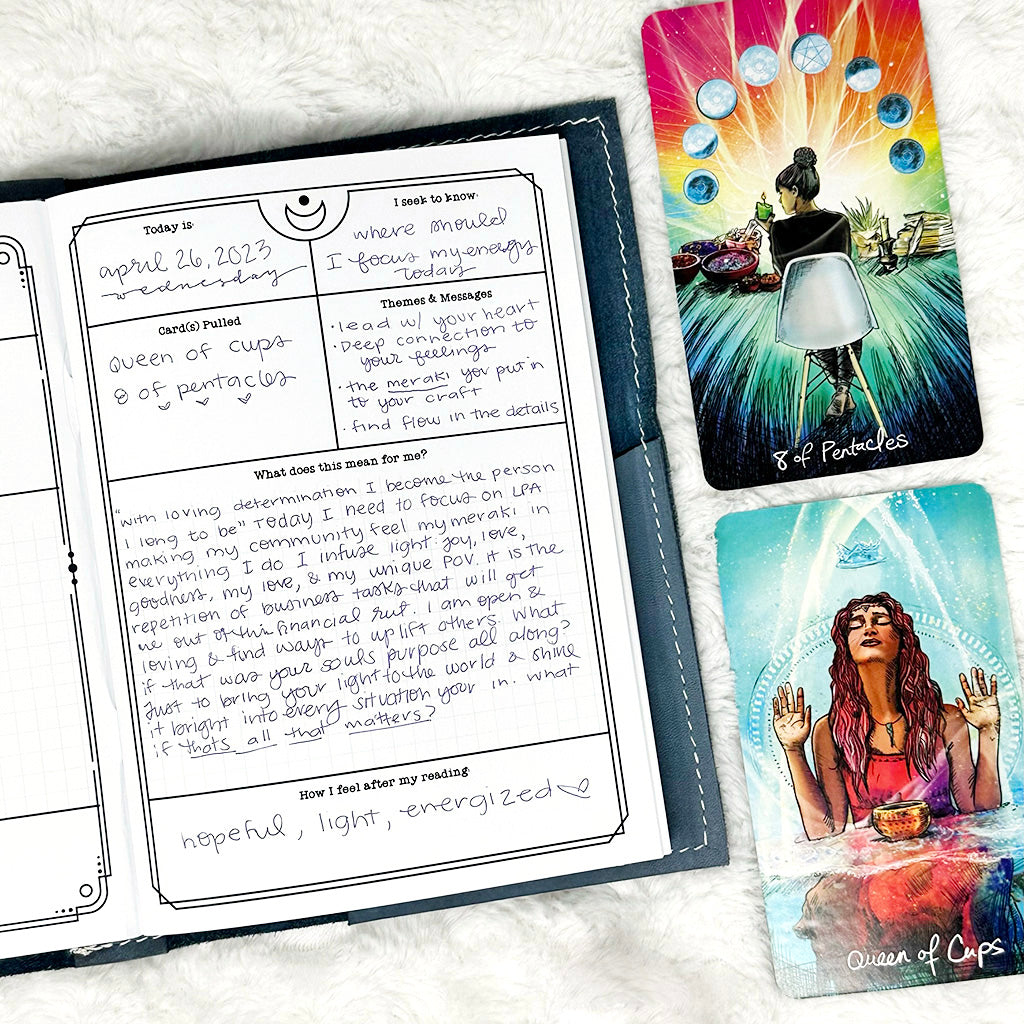 Today is:
april 26, 2023
wednesday
I seek to know:
where should
I focus my energy
today
Card(s) Pulled
Queen of cups
8 of pentacles
Themes & Messages
• lead w/ your heart
• Deep connection to
your feelings
• the meraki you put in
to your craft
• find flow in the details
What does this mean for me?
"with loving determination I become the person
I long to be" Today I need to focus on LPA
making my community feel my meraki in
everything I do I infuse light, joy, love,
goodness, my love, & my unique POV. It is the
repetition of business tasks that will get
me out of this financial rut. I am open &
loving & find ways to uplift others. What
if that was your souls purpose all along?
Just to bring your light to the world & shine
it bright into every situation your in. what
if thats all that matters?
How I feel after my reading:
hopeful, light, energized ♡
8 of Pentacles
Queen of Cups